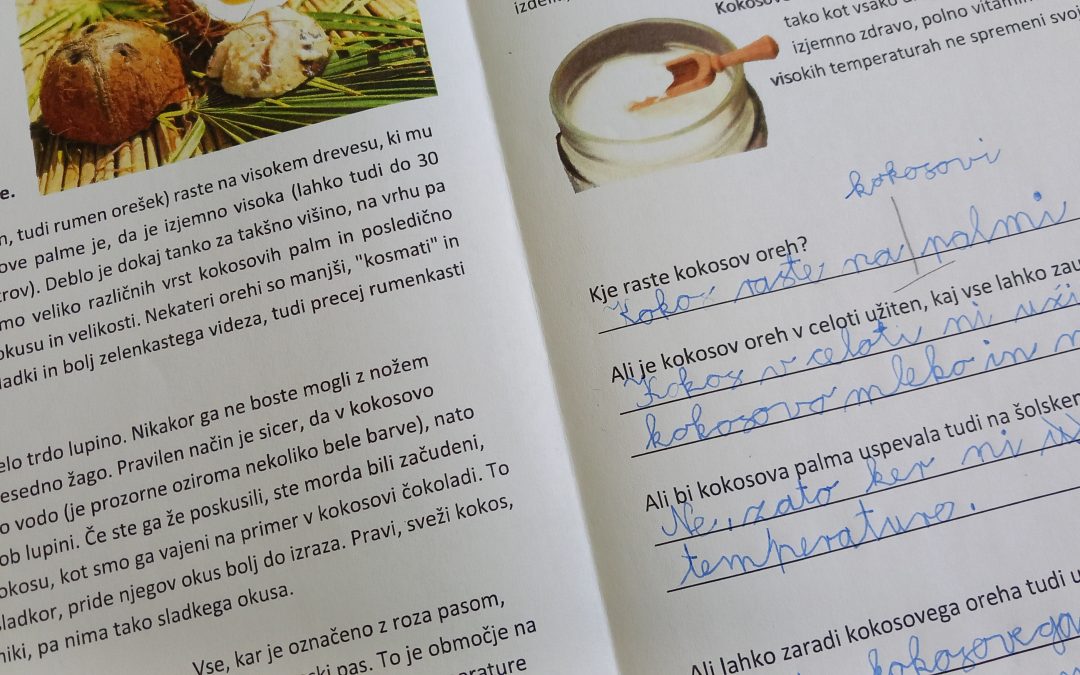 e.
n, tudi rumen orešek) raste na visokem drevesu, ki mu
ove palme je, da je izjemno visoka (lahko tudi do 30
trov). Deblo je dokaj tanko za takšno višino, na vrhu pa
mo veliko različnih vrst kokosovih palm in posledično
okusu in velikosti. Nekateri orehi so manjši, "kosmati" in
ladki in bolj zelenkastega videza, tudi precej rumenkasti
elo trdo lupino. Nikakor ga ne boste mogli z nožem
esedno žago. Pravilen način je sicer, da v kokosovo
o vodo (je prozorne oziroma nekoliko bele barve), nato
ob lupini. Če ste ga že poskusili, ste morda bili začudeni,
okosu, kot smo ga vajeni na primer v kokosovi čokoladi. To
sladkor, pride njegov okus bolj do izraza. Pravi, sveži kokos,
niki, pa nima tako sladkega okusa.
Vse, kar je označeno z roza pasom,
ski pas. To je območje na
erature
izdel
Kokosov
tako kot vsako
izjemno zdravo, polno vitamin
visokih temperaturah ne spremeni svoj
kokosovi
Kje raste kokosov oreh?
Kokos raste na palmi
Ali je kokosov oreh v celoti užiten, kaj vse lahko zau
Kokos v celoti ni uži
kokosovo mleko in m
Ali bi kokosova palma uspevala tudi na šolskem
Ne, zato ker ni
temperature.
Ali lahko zaradi kokosovega oreha tudi u
kokosovega